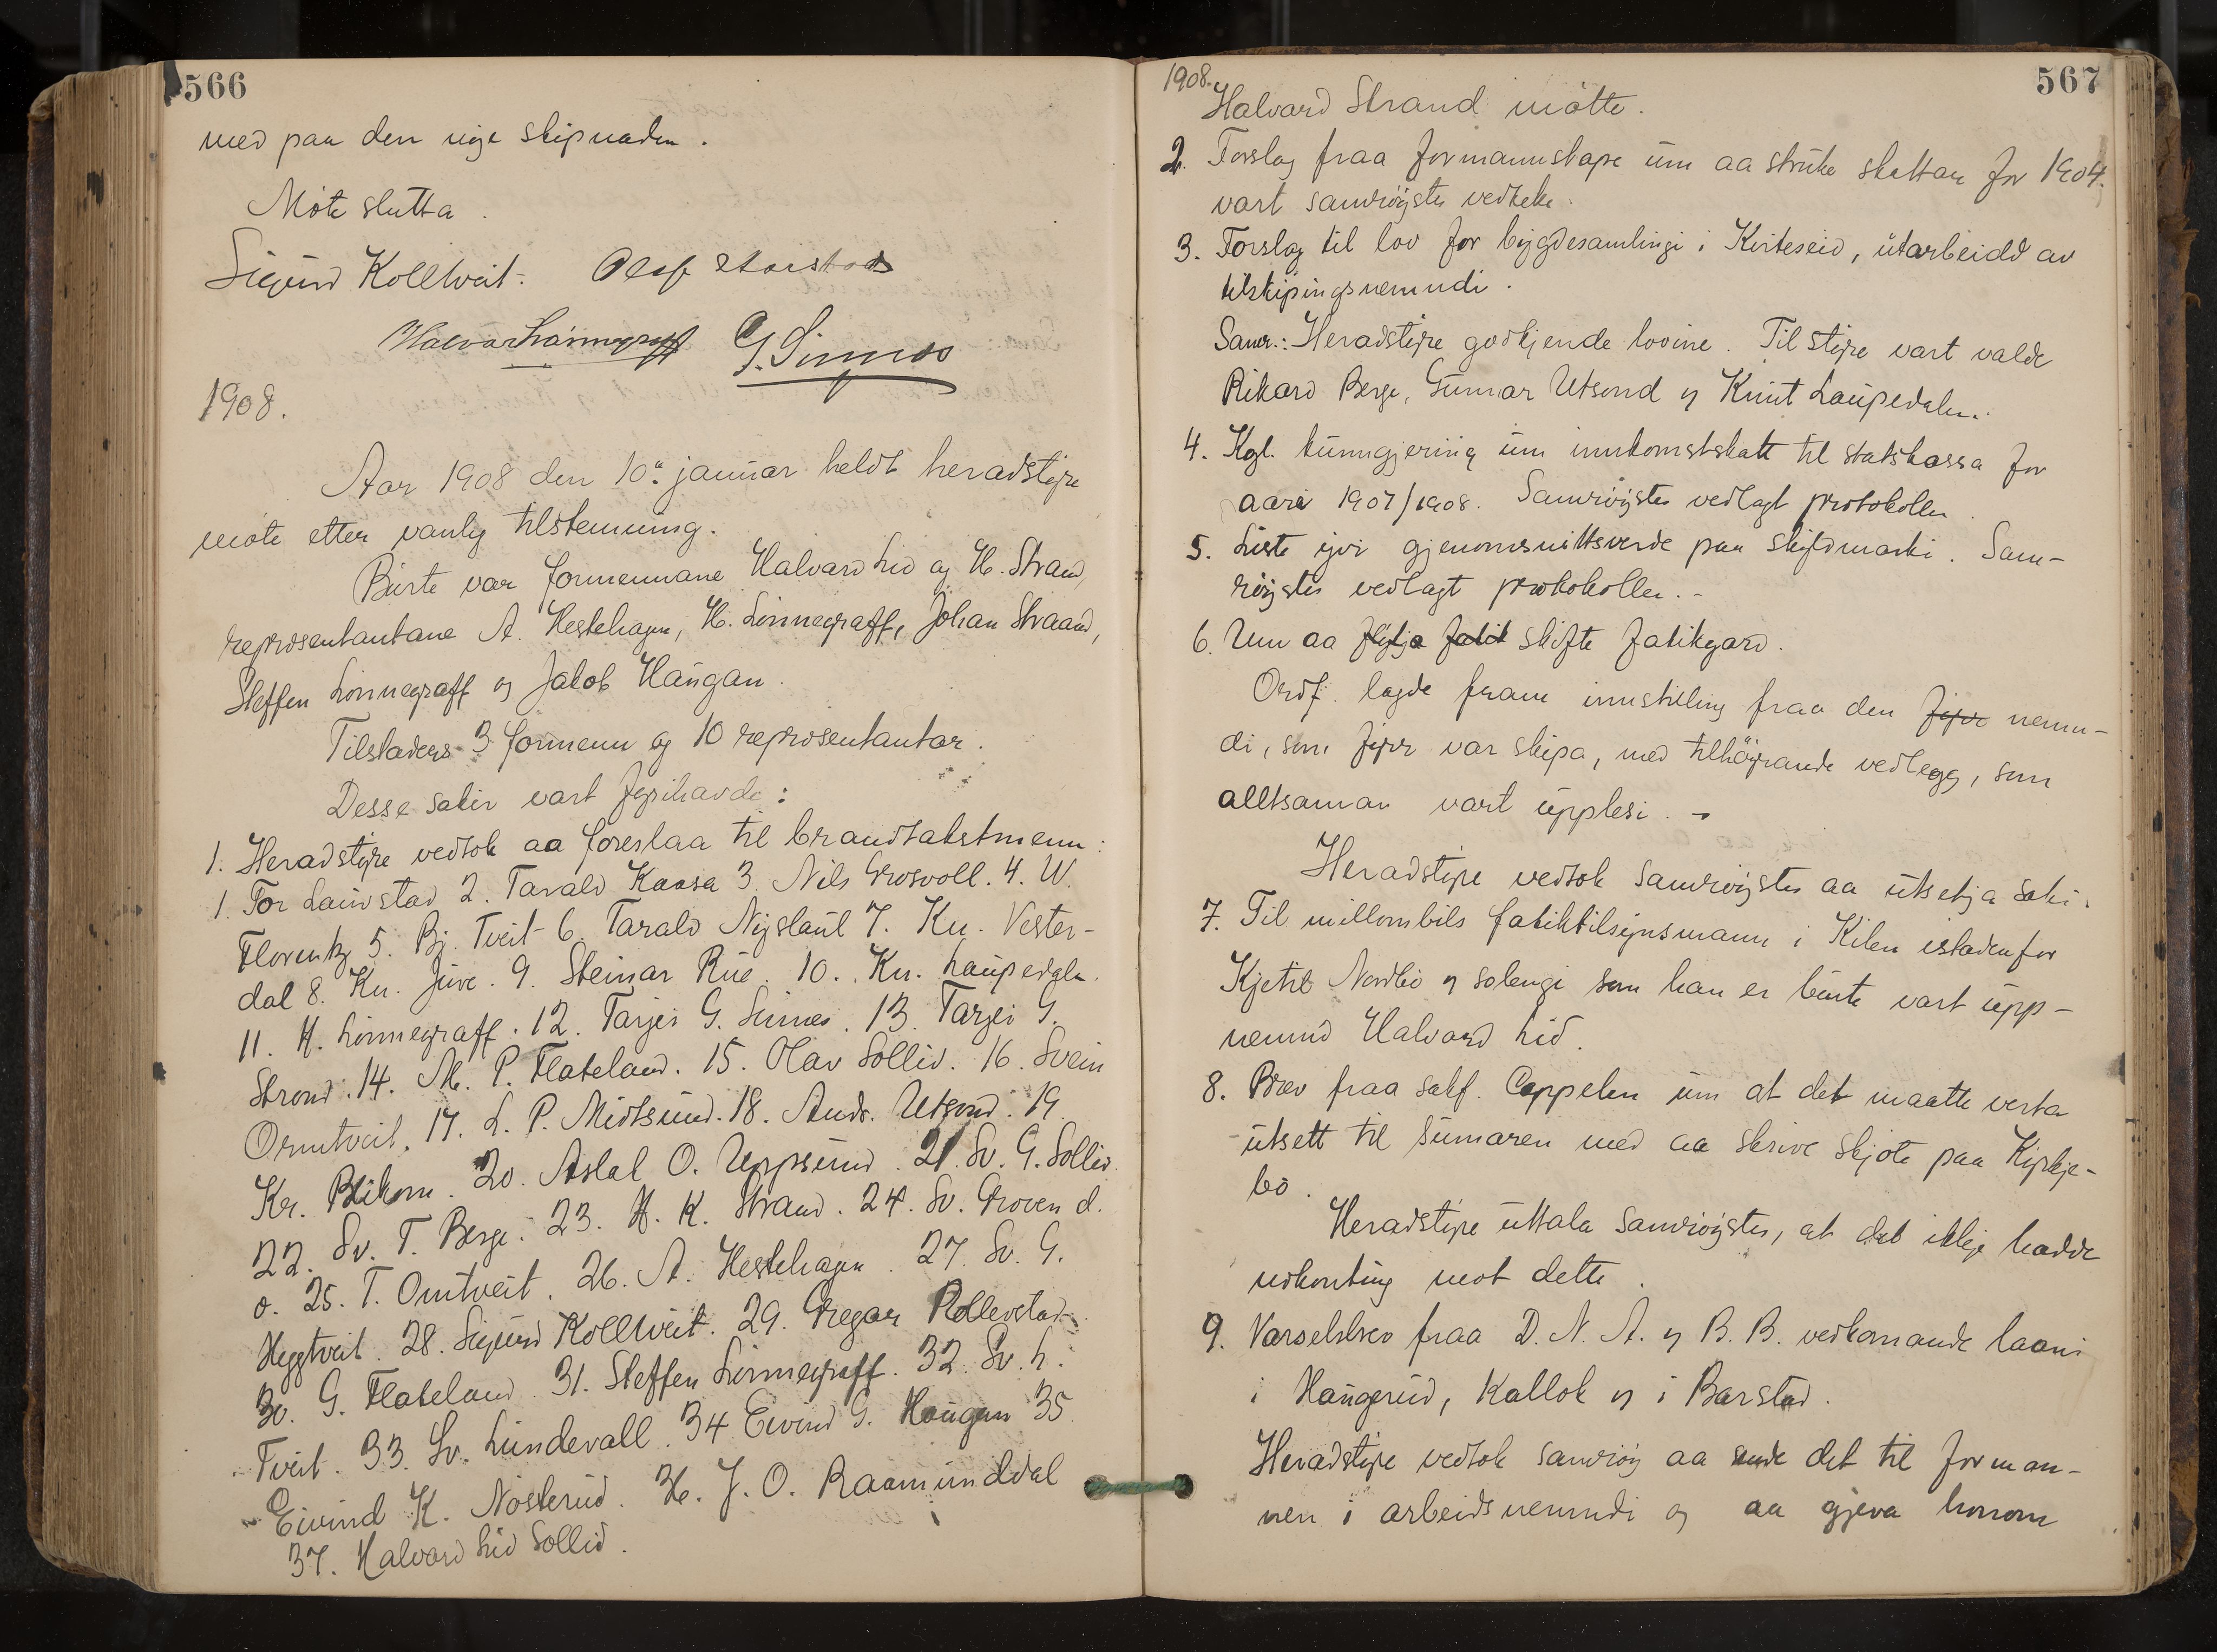 566
med paa den nye skipnaden.
Møte slutta.
Sigurd Kolltveit. Olaf Storstad
Halvar Lønnegraff G. Sinnes
1908.
Aar 1908 den 10. januar heldt heradstyre
møte etter vanlig tilstemning.
Burte var formennane Halvard Lid og H. Strand,
representantane A. Hestehagen, H. Lønnegraff, Johan Straand,
Steffen Lønnegraff og Jakob Haugan.
Tilstades 3 formenn og 10 representantar.
Desse sakir vart fyrihavde:
1. Heradstyre vedtok aa foreslaa til brandtakstmenn:
1. Tor Laurstad 2. Tarald Kaasa 3. Nils Grosvoll. 4. W.
Florentz 5. Bj. Tveit 6. Tarald Nyslaul 7. Kn. Vester-
dal 8. Kn. Juve. 9. Steinar Rue. 10. Kn. Laupedalen.
11. H. Lønnegraff. 12. Tarjei G. Sinnes. 13. Tarjei G.
Strond. 14. M. P. Flateland. 15. Olav Sollid. 16. Svein
Ormtveit. 17. L. P. Midtsund. 18. Andr. Utsond. 19.
Kr. Blikom. 20. Aslak O. Uppsund. 21. Sv. G. Sollid.
22. Sv. T. Berge. 23. H. K. Strand. 24. Sv. Groven d.
o. 25. T. Omtveit. 26. A. Hestehagen. 27. Sv. G.
Heggtveit. 28. Sigurd Kolltveit. 29. Gregar Rollevstad.
30. G. Flateland. 31. Steffen Lønnegraff. 32. Sv. L.
Tveit. 33. Sv. Lundevall. 34 Eivind G. Haugan 35.
Eivind K. Nosterud. 36. J. O. Raamunddal
37. Halvard Lid Sollid.
1908. 567
Halvard Strand møtte.
2. Forslag fraa formannskape um aa stryke skattar for 1904.
vart samrøystes vedteke.
3. Forslag til lov for bygdesamlingi i Kviteseid, utarbeidd av
tilskipingsnemndi.
Samr.: Heradstyre godkjende lovine. Til styre vart valde
Rikard Berge, Gunnar Utsond og Knut Laupedalen.
4. Kgl. kunngjering um innkomstskatt til statskassa for
aari 1907/1908. Samrøystes vedlagt protokollen.
5. Liste yvi gjenomsnittsverde paa skyldmarki. Sam-
røystes vedlagt protokollen.-
6. Um aa flytja fatik skifte fatikgard.
Ordf. lagde fram innstilling fraa den fyrr nemn-
di, som fyrr var skipa, med tilhøyrande vedlegg, som
alltsaman vart upplesi. -
Heradstyre vedtok samrøystes aa utsetja saki.
7. Til millombils fatiktilsynsmann i Kilen istadenfor
Kjetil Nordbø og solengi som han er burte vart upp-
nemnd Halvard Lid.
8. Brev fraa sakf. Cappelen um at det maatte verta
utsett til sumaren med aa skrive skjøte paa Kyrkje-
bø.
Heradstyre uttala samrøystes, at det ikkje hadde
noko mot dette.
9. Varselsbrev fraa D. N. A. og B. B. vedkomande laani
i Haugerud, Kallok og i Barstad.
Heradstyre vedtok samrøy aa sende det til forman-
nen i arbeidsnemndi og aa gjeva honom